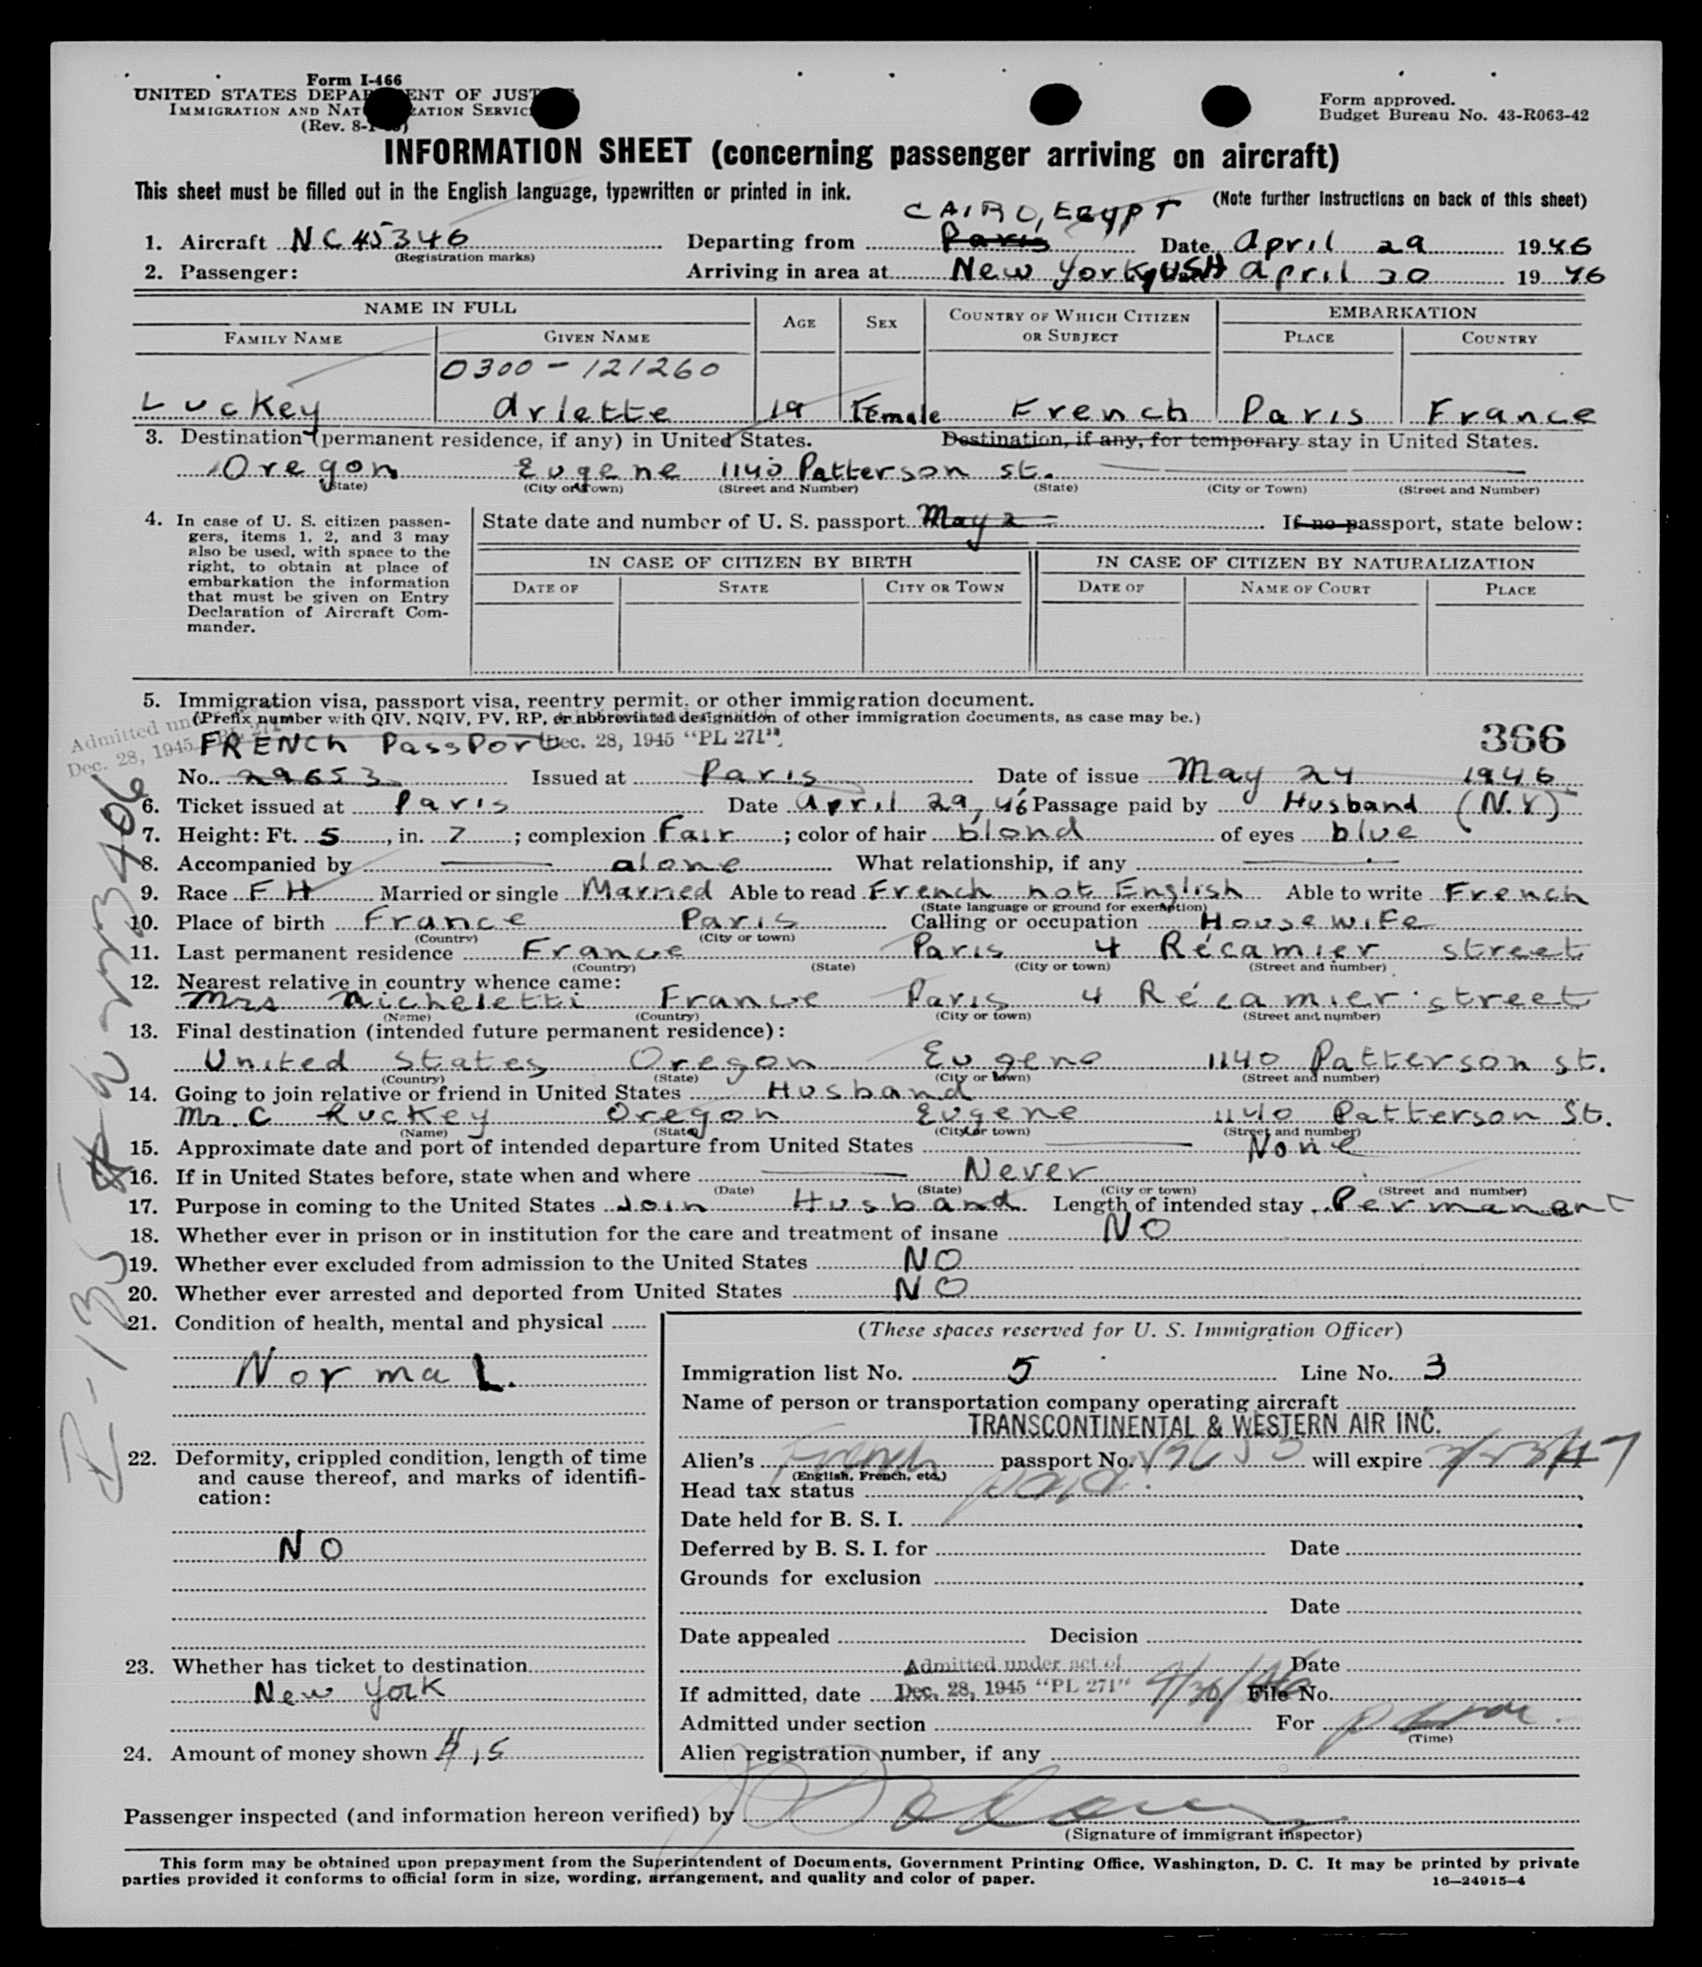 Form I-466
UNITED STATES DEPARTMENT OF JUSTICE
IMMIGRATION AND NATURALIZATION SERVICE
(Rev. 8-
Form approved.
Budget Bureau No. 43-R063-42
INFORMATION SHEET (concerning passenger arriving on aircraft)
This sheet must be filled out in the English language, typewritten or printed in ink.
(Note further instructions on back of this sheet)
CAIRO, EGYPT
1. Aircraft NC45346 Departing from Paris Date April 29 1946
(Registration marks)
2. Passenger: Arriving in area at New York, USA April 30 1946
NAME IN FULL AGE SEX COUNTRY OF WHICH CITIZEN OR SUBJECT EMBARKATION
FAMILY NAME GIVEN NAME PLACE COUNTRY
0300-121260
Luckey Arlette 19 Female French Paris France
3. Destination (permanent residence, if any) in United States. Destination, if any, for temporary stay in United States.
Oregon Eugene 1140 Patterson st.
(State) (City or Town) (Street and Number) (State) (City or Town) (Street and Number)
4. In case of U. S. citizen passen-
gers, items 1, 2, and 3 may
also be used, with space to the
right, to obtain at place of
embarkation the information
that must be given on Entry
Declaration of Aircraft Com-
mander.
State date and number of U. S. passport May 2 If no passport, state below:
IN CASE OF CITIZEN BY BIRTH IN CASE OF CITIZEN BY NATURALIZATION
DATE OF STATE CITY OR TOWN DATE OF NAME OF COURT PLACE
5. Immigration visa, passport visa, reentry permit, or other immigration document.
(Prefix number with QIV, NQIV, PV, RP, or abbreviated designation of other immigration documents, as case may be.)
Admitted un
Dec. 28, 1945 "PL 271"
FRENCH PassPort Dec. 28, 1945 "PL 271"
366
No. 29653 Issued at Paris Date of issue May 24 1946
6. Ticket issued at Paris Date April 29, 46 Passage paid by Husband (N.Y)
7. Height: Ft. 5, in. 7; complexion Fair; color of hair blond of eyes blue
8. Accompanied by alone What relationship, if any
9. Race FH Married or single Married Able to read French not English Able to write French
(State language or ground for exemption)
10. Place of birth France Paris Calling or occupation Housewife
(Country) (City or town)
11. Last permanent residence France Paris 4 Récamier street
(Country) (State) (City or town) (Street and number)
12. Nearest relative in country whence came:
Mrs Micheletti France Paris 4 Récamier street
(Name) (Country) (City or town) (Street and number)
13. Final destination (intended future permanent residence):
United States Oregon Eugene 1140 Patterson st.
(Country) (State) (City or town) (Street and number)
14. Going to join relative or friend in United States Husband
Mr. C Luckey Oregon Eugene 1140 Patterson St.
(Name) (State) (City or town) (Street and number)
15. Approximate date and port of intended departure from United States None
16. If in United States before, state when and where Never
(Date) (State) (City or town) (Street and number)
17. Purpose in coming to the United States Join Husband. Length of intended stay Permanent
18. Whether ever in prison or in institution for the care and treatment of insane NO
19. Whether ever excluded from admission to the United States NO
20. Whether ever arrested and deported from United States NO
21. Condition of health, mental and physical
Normal.
22. Deformity, crippled condition, length of time
and cause thereof, and marks of identifi-
cation:
NO
23. Whether has ticket to destination
New York
24. Amount of money shown $15
(These spaces reserved for U. S. Immigration Officer)
Immigration list No. 5 Line No. 3
Name of person or transportation company operating aircraft
TRANSCONTINENTAL & WESTERN AIR INC.
Alien's French passport No. will expire
(English, French, etc.)
Head tax status paid.
Date held for B. S. I.
Deferred by B. S. I. for Date
Grounds for exclusion
Date
Date appealed Decision
Admitted under act of Date
If admitted, date Dec. 28, 1945 "PL 271" 4/30/46 File No.
Admitted under section For
(Time)
Alien registration number, if any
Passenger inspected (and information hereon verified) by
(Signature of immigrant inspector)
This form may be obtained upon prepayment from the Superintendent of Documents, Government Printing Office, Washington, D. C. It may be printed by private
parties provided it conforms to official form in size, wording, arrangement, and quality and color of paper.
16—24915-4